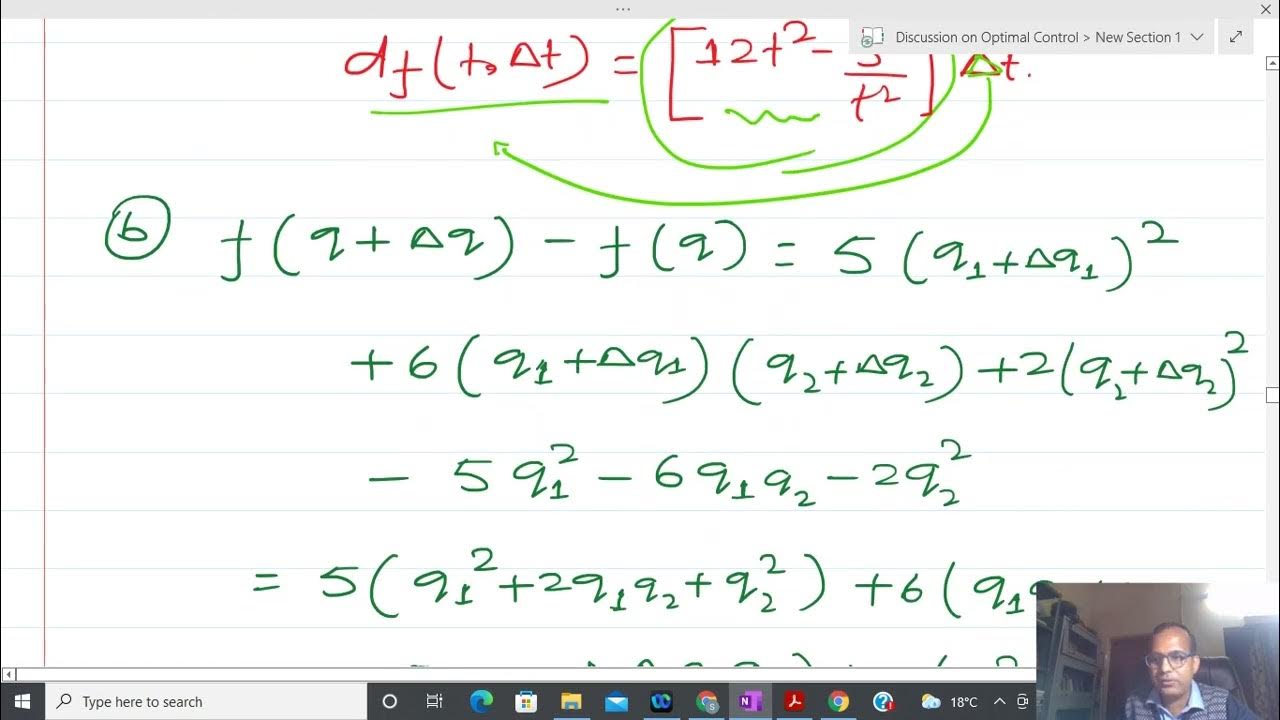 Discussion on Optimal Control > New Section 1
df(t,Δt) = [12t² - 5/t²] Δt.
(b) f(q+Δq) - f(q) = 5(q₁+Δq₁)²
+6(q₁+Δq₁)(q₂+Δq₂)+2(q₂+Δq₂)²
- 5q₁² - 6q₁q₂ - 2q₂²
= 5(q₁²+2q₁q₂+q₂²) +6(q₁
Type here to search
18°C